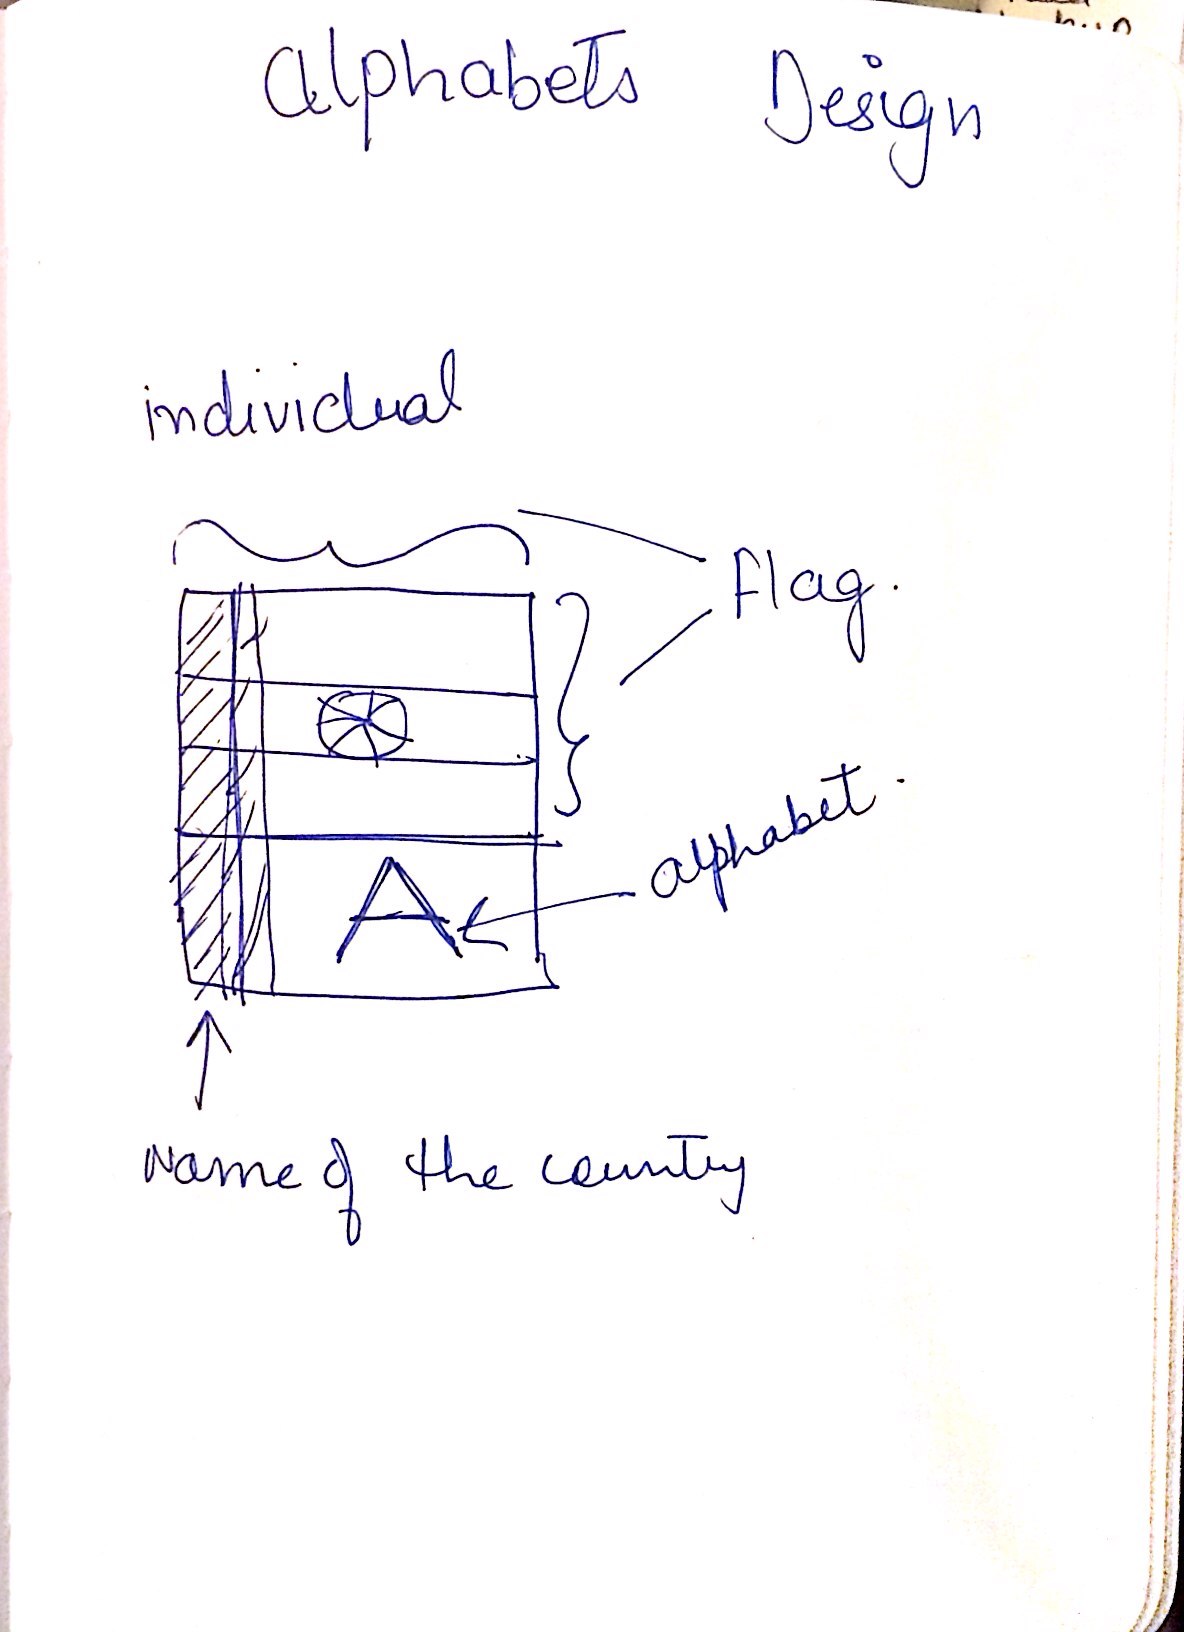 Alphabets Design
individual
Flag.
alphabet.
A
Name of the country